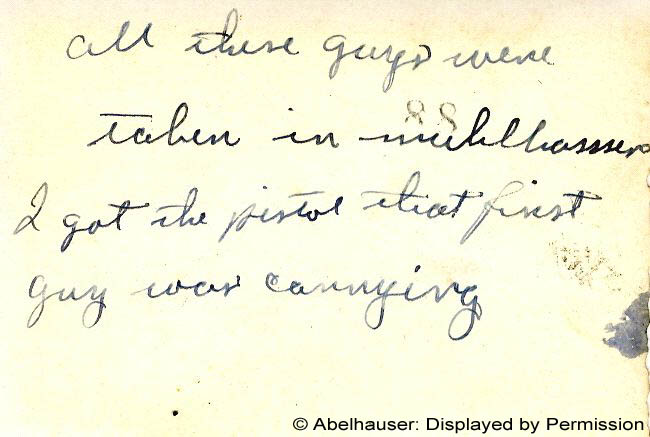 all these guys were
88
taken in muhlhassen
I got the pistol that first
guy was carrying
© Abelhauser: Displayed by Permission